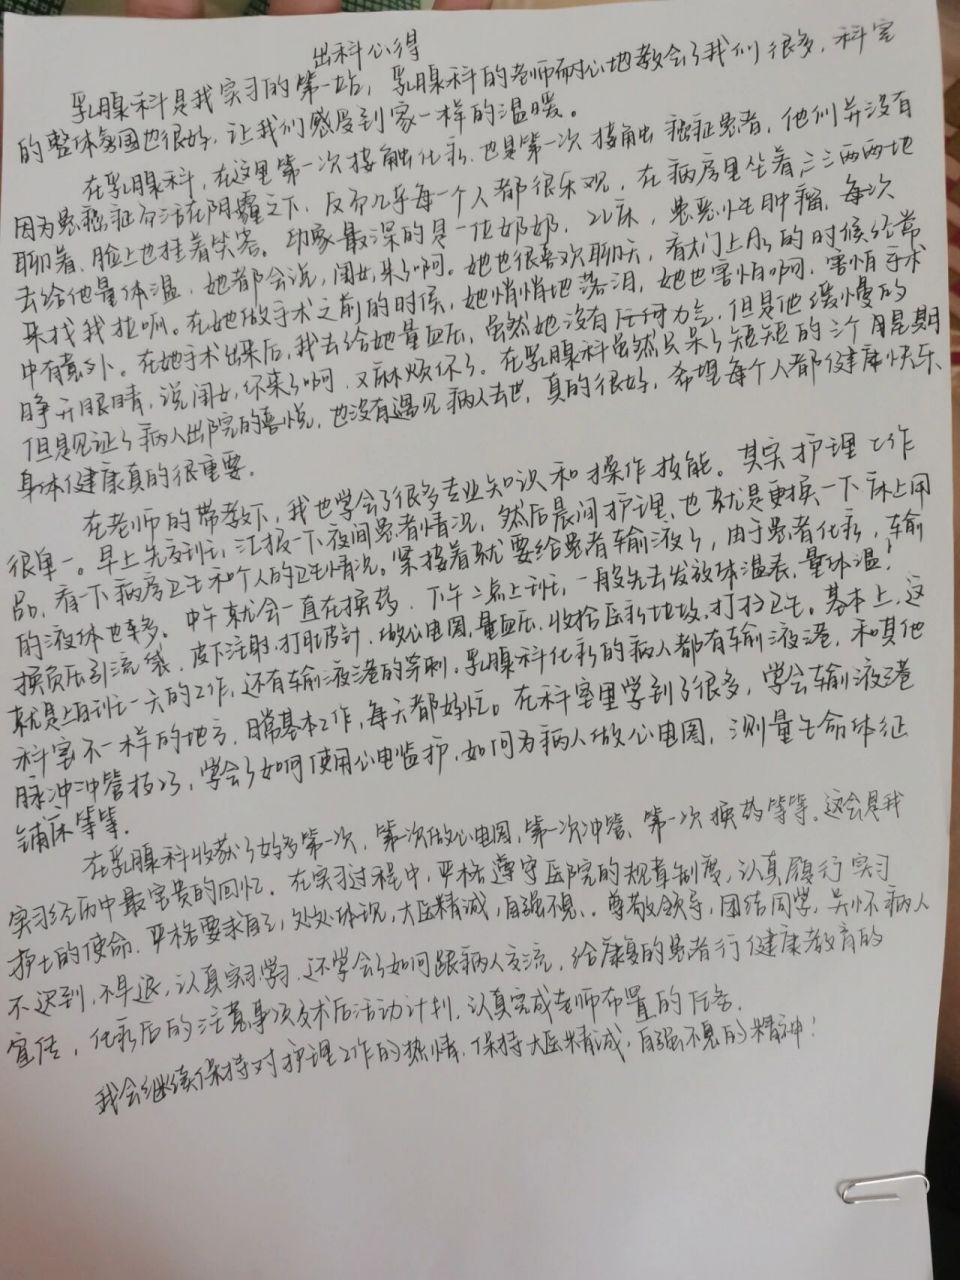 出科心得
乳腺科是我实习的第一站，乳腺科的老师耐心地教会了我们很多，科室
的整体氛围也很好，让我们感受到家一样的温暖。
在乳腺科，在这里第一次接触化疗，也是第一次接触癌症患者，他们并没有
因为患癌症而活在阴霾之下，反而几乎每一个人都很乐观，在病房里坐着三三两两地
聊着，脸上也挂着笑容。印象最深的是一位奶奶，22床，患恶性肿瘤，每次
去给他量体温，她都会说，闺女，来了啊。她也很喜欢聊天，看大门上的时候经常
来找我拉呱。在她做手术之前的时候，她悄悄地落泪，她也害怕啊，害怕手术
中有意外。在她手术出来后，我去给她量血压，虽然她没有任何力气，但是他缓慢的
睁开眼睛，说闺女，你来了啊，又麻烦你了。在乳腺科虽然只呆了短短的三个星期
但是见证了病人出院的喜悦，也没有遇见病人去世，真的很好，希望每个人都健康快乐
身体健康真的很重要。
在老师的带教下，我也学会了很多专业知识和操作技能。其实护理工作
很单一。早上先交班，汇报一下夜间患者情况，然后晨间护理，也就是更换一下床上用
品，看一下病房卫生和个人的卫生情况。紧接着就要给患者输液了，由于患者化疗，输
的液体也较多。中午就会一直在换药，下午二点上班，一般先去发放体温表，量体温，
换负压引流袋，皮下注射，打肚皮针，做心电图，量血压，收拾医疗垃圾，打扫卫生。基本上，这
就是上白班一天的工作，还有输液港的穿刺，乳腺科化疗的病人都有输液港，和其他
科室不一样的地方，日常基本工作，每天都好忙。在科室里学到了很多，学会输液港
脉冲冲管技巧，学会了如何使用心电监护，如何为病人做心电图，测量生命体征
铺床等等。
在乳腺科收获了好多第一次，第一次做心电图，第一次冲管，第一次换药等等。这会是我
实习经历中最宝贵的回忆。在实习过程中，严格遵守医院的规章制度，认真履行实习
护士的使命，严格要求自己，处处体现，大医精诚，自强不息、尊敬领导，团结同学，关怀病人
不迟到，不早退，认真实习学习，还学会了如何跟病人交流，给康复的患者行健康教育的
宣传，化疗后的注意事项及术后活动计划，认真完成老师布置的任务。
我会继续保持对护理工作的热情，保持大医精诚，自强不息的精神！